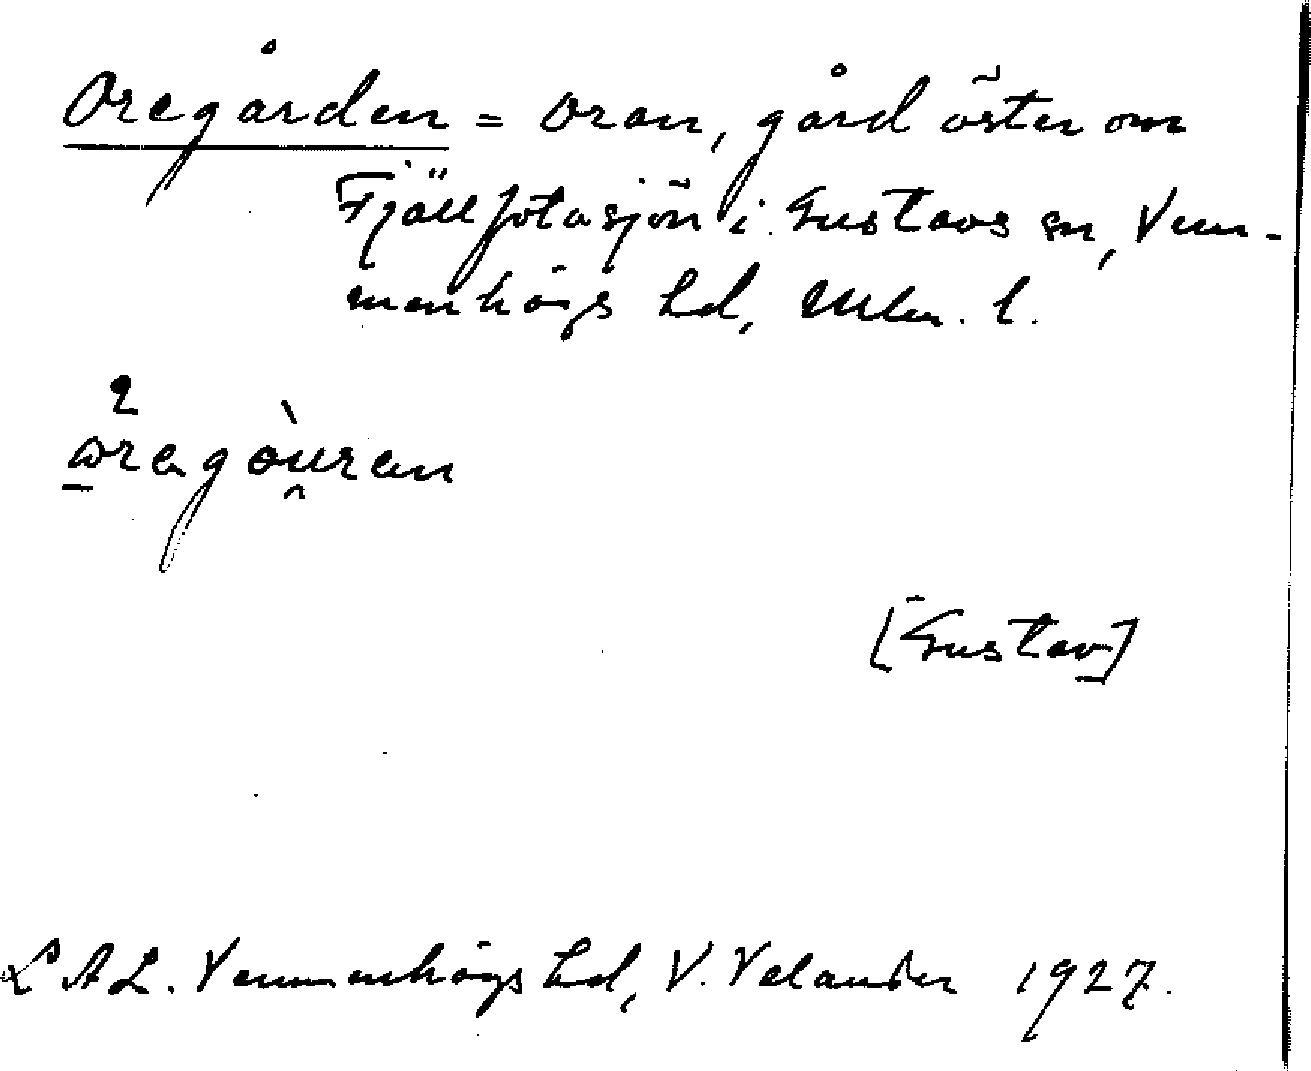 Oregården = Oran, gård öster om
Fjällfotasjön i Gustavs sn, Vem-
menhögs hd, Mlm. l.
[Gustav]
L A L. Vemmenhögs hd, V. Velander 1927.